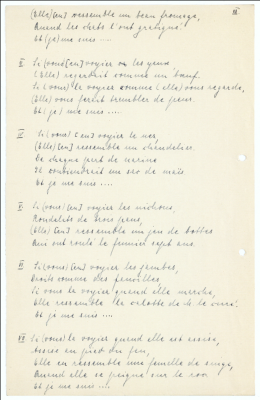 III
(Elle) [en] ressemble un beau fromage,
Quand les chats l'ont
Et (je) me suis ....
III Si (vous) [en] voyiez les yeux
(Elle) regardait comme un bœuf.
Si (vous) le voyiez comme (elle) vous regarde,
(Elle) vous ferait trembler de peur.
Et (je) me suis ....
IV Si (vous) [en] voyiez le nez,
(Elle) [en] ressemble un chandelier.
De chaque
Il un sac de
Et je me suis ....
V Si (vous) [en] voyiez les nichons,
de trois
(Elle) [en] ressemble un jeu de bottes
Qui ont roulé le fumier sept ans.
VI Si (vous) [en] voyiez les jambes,
Droites comme des faucilles
Si vous le voyiez quand elle marche,
Elle ressemble
Et je me suis ....
VII Si (vous) le voyiez quand elle est assise,
Assise au pied du feu,
Elle en ressemble une femelle de singe,
Quand elle se peigne sur le
Et je me suis ....